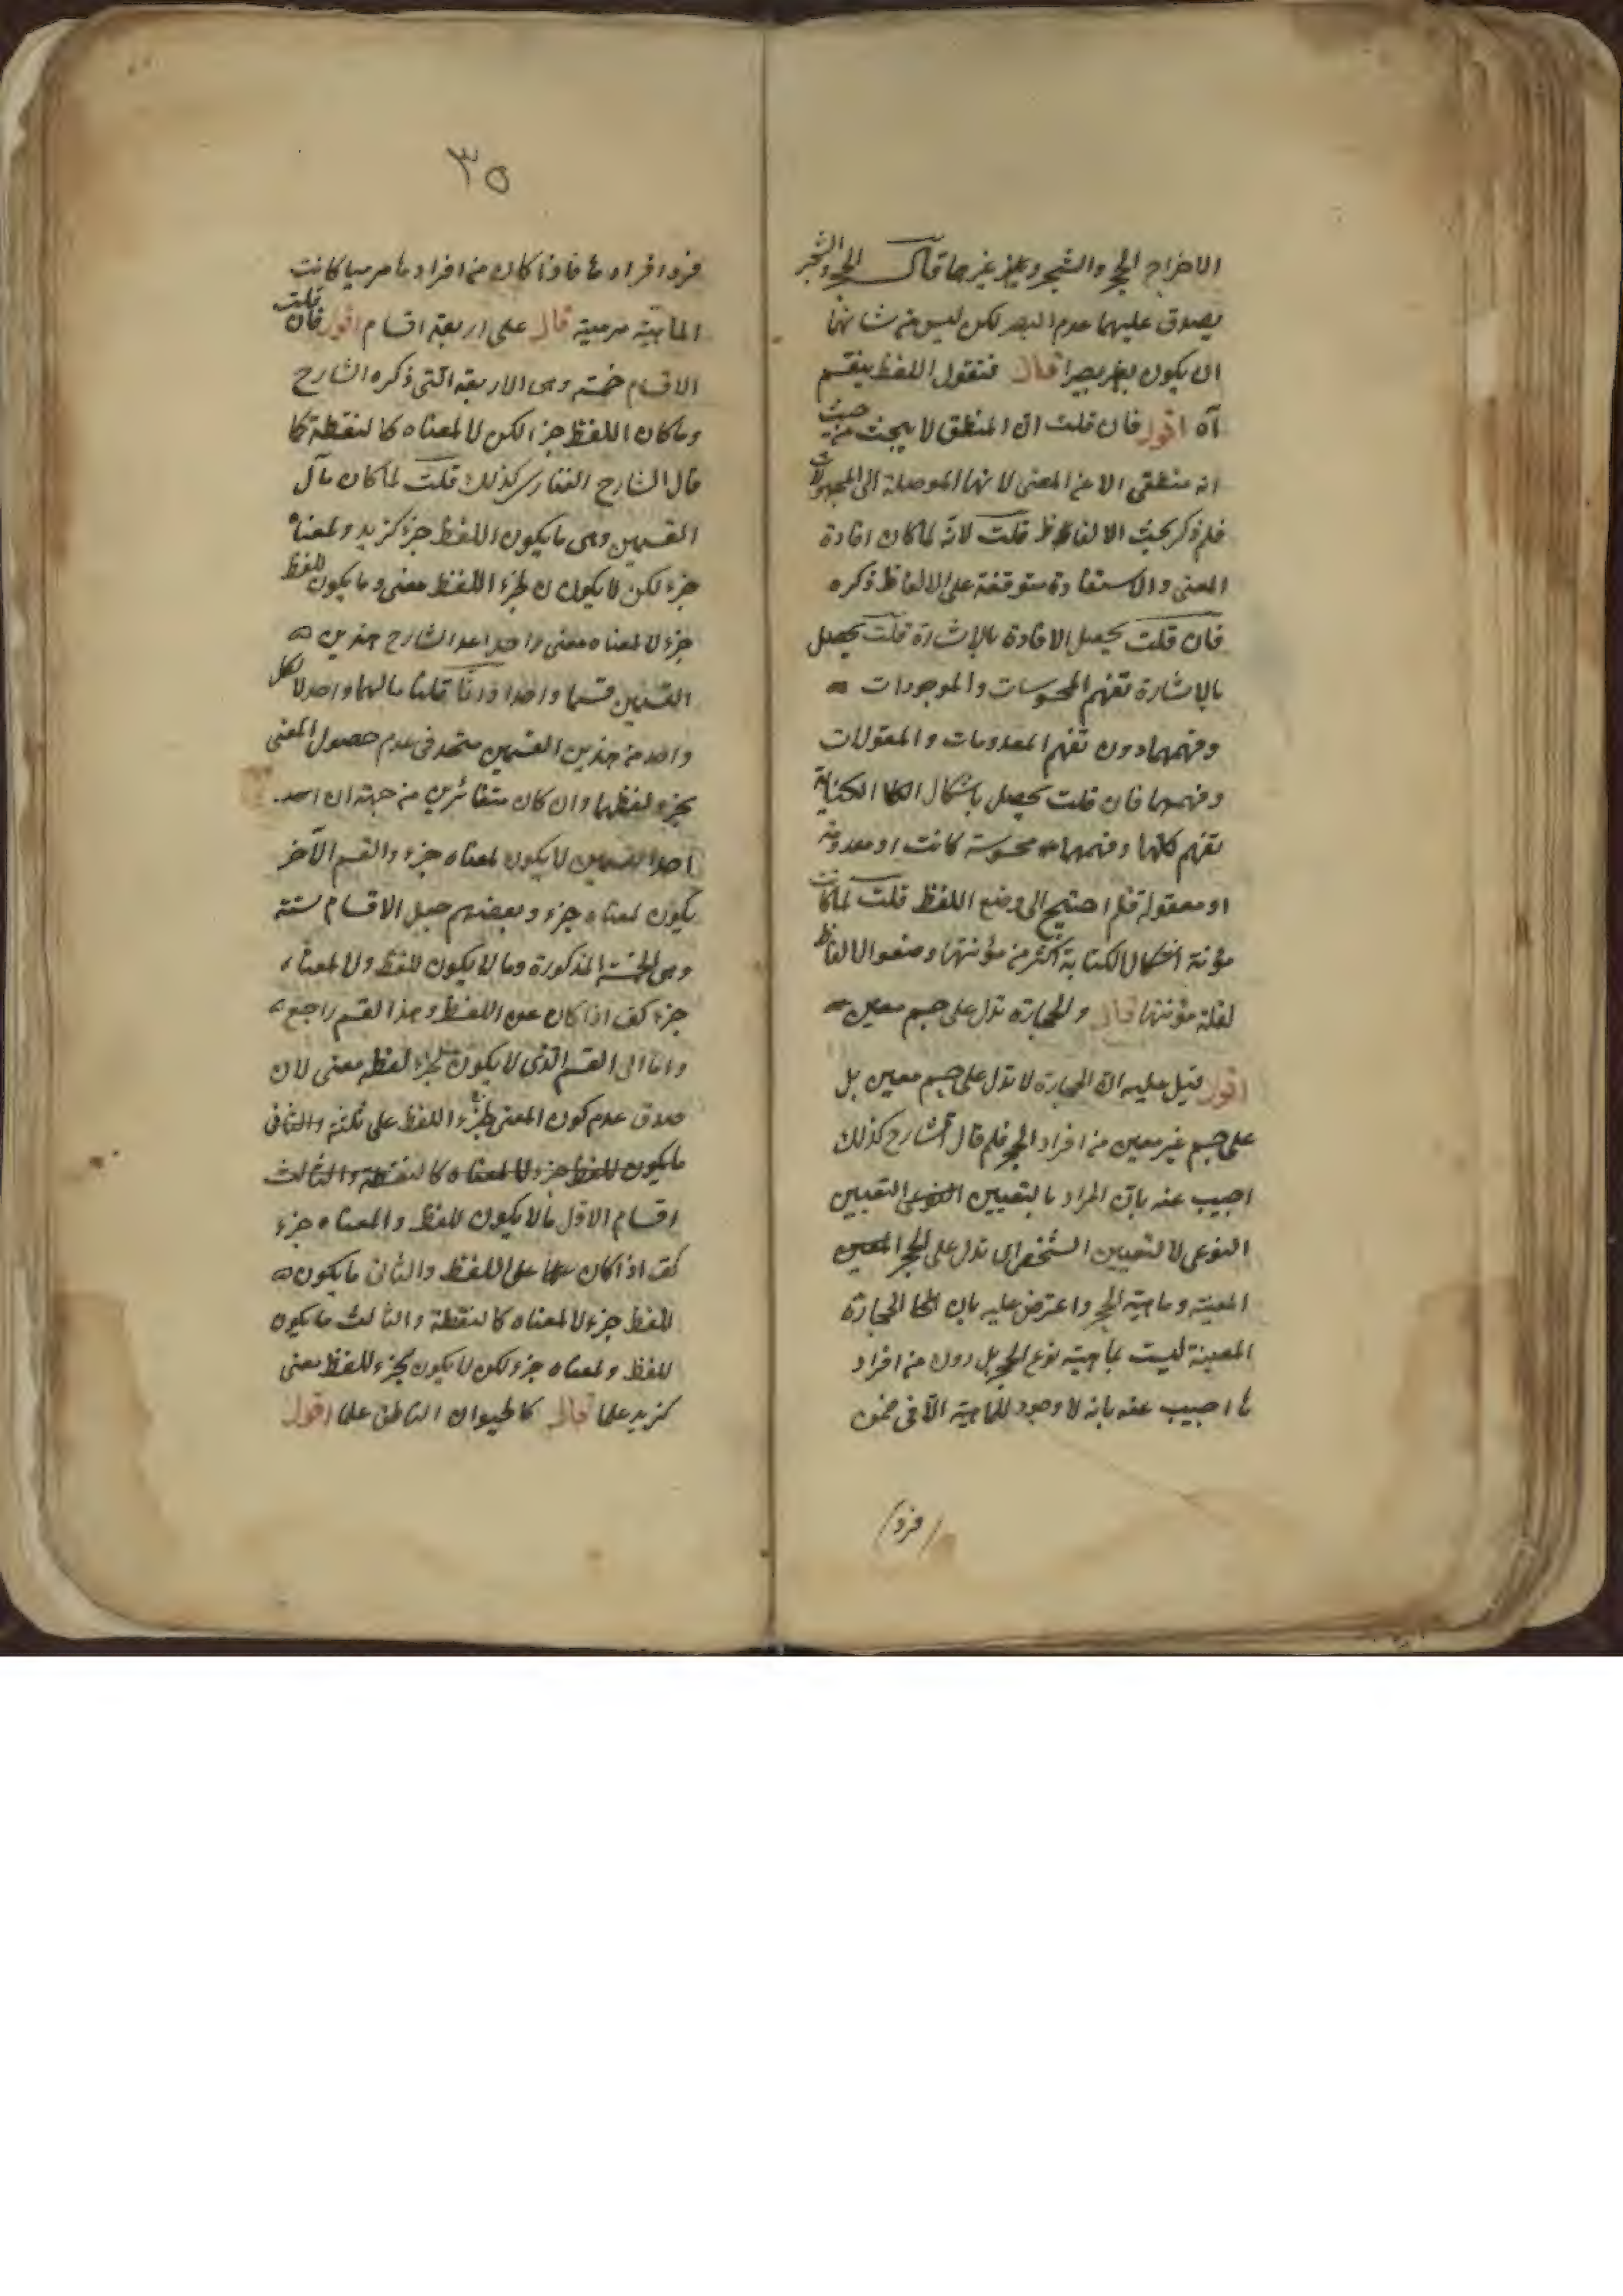 الاخراج الحجر والشجر وغيرهما فان الحجر والشجر
يصدق عليهما عدم البصر لكن ليس من شانهما
ان يكون بصيرا قال فنقول اللفظ ينقسم
آه اقول فان قلت ان المنطقى لا يبحث من حيث
انه منطقى الا عن المعنى لانها الموصلة الى المجهولات
فلم ذكر بحث الالفاظ قلت لانه لما كان افادة
المعنى والاستفادة متوقفة على الالفاظ ذكره
فان قلت يحصل الافادة بالاشارة قلت يحصل
بالاشارة تفهم المحسوسات والموجودات
وفهمها دون تفهم المعدومات والمعقولات
وفهمها فان قلت يحصل باشكال الكتابة
تفهم كلها وفهمها محسوسة كانت او معدومة
او معقولة فلم احتيج الى وضع اللفظ قلت لما كانت
مؤنة اشكال الكتابة اكثر من مؤنتها وضعوا الالفاظ
لقلة مؤنتها قال والحجارة تدل على جسم معين
اقول قيل عليه ان الحجارة لا تدل على جسم معين بل
على جسم غير معين من افراد الحجر فلم قال الشارح كذلك
اجيب عنه بان المراد بالتعيين التعيين
النوعى لا التعيين الشخصى اى تدل على الحجر
المعينة وماهية الحجر واعترض عليه بان الحجارة
المعينة ليست بماهية نوع الحجر بل دون من افراد
ها اجيب عنه بانه لا وجود للماهية الا فى ضمن
فرد
٣٥
فرد افراد ها فاذا كان من افرادها مرميا كانت
الماهية مرمية قال على اربعة اقسام اقول فان قلت
الاقسام خمسة وهى الاربعة التى ذكره الشارح
وما كان اللفظ جزء لكن لا لمعناه كالنقطة كما
قال الشارح الفنارى كذلك قلت لما كان مآل
القسمين وهى ما يكون اللفظ جزء كزيد ولمعناه
جزء لكن لا يكون لجزء اللفظ معنى وما يكون للفظ
جزء لا لمعناه معنى واحدا عد الشارح هذين
القسمين قسما واحدا وانما قلنا مالهما واحد لان كل
واحد من هذين القسمين متحد فى عدم حصول المعنى
بجزء لفظهما وان كان متغائرين من جهة ان
احد القسمين لا يكون لمعناه جزء والقسم الآخر
يكون لمعناه جزء وبعضهم جعل الاقسام ستة
وهى الخمسة المذكورة وما لا يكون للفظ ولا لمعناه
جزء كق اذا كان علما اللفظ وهذا القسم راجع
واما الى القسم الذى لا يكون لجزء لفظه معنى لان
صدق عدم كون المعنى لجزء اللفظ على ثلثة والثانى
ما يكون للفظ جزء لا لمعناه كالنقطة والثالث
اقسام الاول ما لا يكون للفظ ولمعناه جزء
كق اذا كان علما على اللفظ والثانى ما يكون
للفظ جزء لا لمعناه كالنقطة والثالث ما يكون
للفظ ولمعناه جزء لكن لا يكون لجزء للفظ معنى
كزيد علما قال كالحيوان الناطق علما اقول